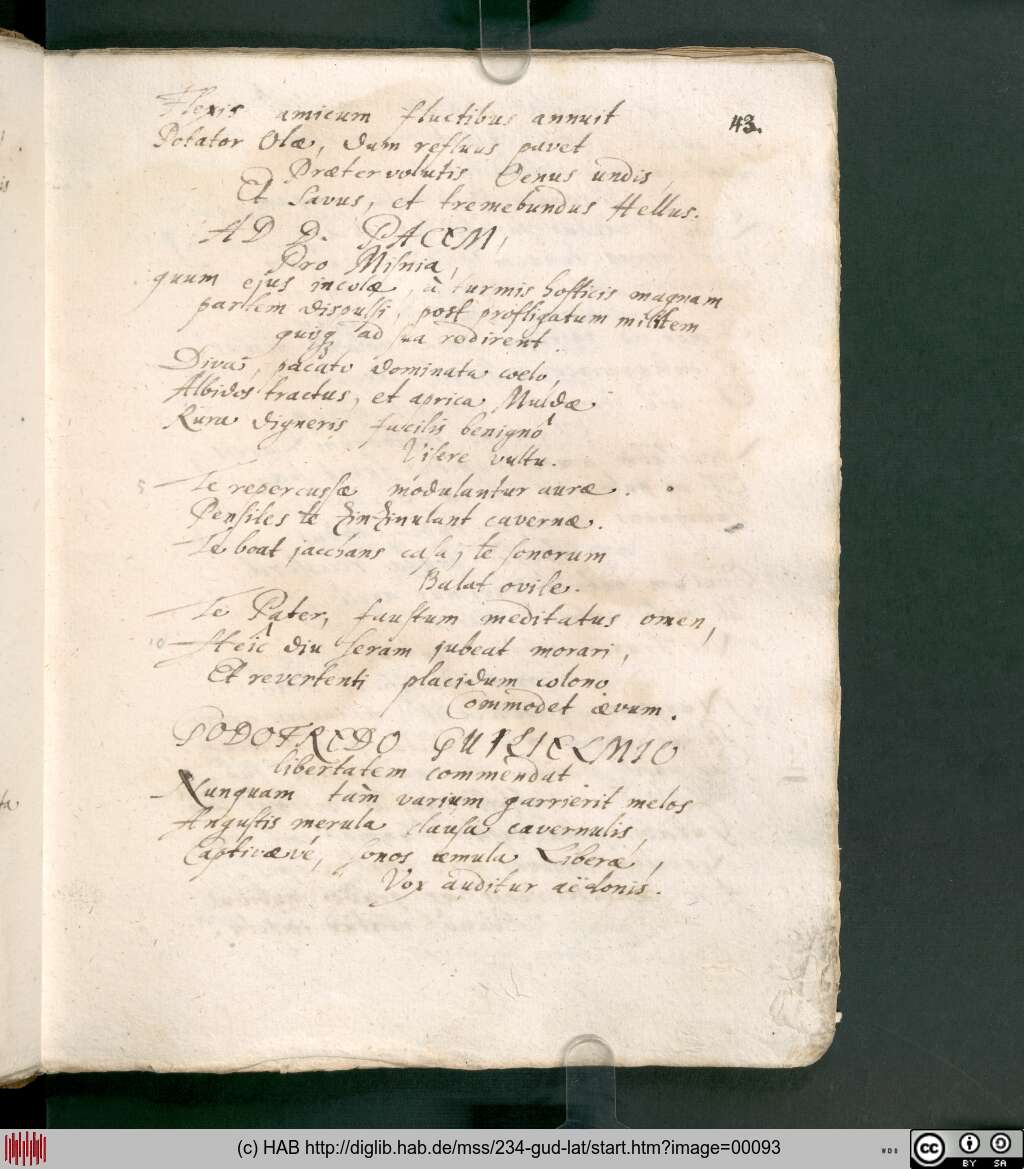 Flexis amicum fluctibus annuit
43.
Potator Olæ, dum refluus pavet
Præter volutis Oenus undis,
Et Savus, et tremebundus Hellus.
AD D. PACEM,
Pro Misnia,
quum ejus incolæ, à turmis hosticis magnam
partem dispulsi, post profligatum militem
quisq ad sua redirent
Diva, pacato dominata coelo,
Albidos tractus, et aprica Muldæ
Rura digneris facilis benignô
Visere vultu.
5 Te repercussæ modulantur auræ.
Pensiles te zinzinulant cavernæ.
Te boat jacchans casa, te sonorum
Balat ovile.
Te Pater, faustum meditatus omen,
10 Heic diu seram jubeat morari,
Et revertenti placidum colono
Commodet ævum.
GODOFREDO GUILIELMIO
libertatem commendat
Nunquam tàm varium garrierit melos
Angustis merula clausa cavernulis,
Captivævé, sonos æmula Liberæ,
Vox auditur aëdonis.
(c) HAB http://diglib.hab.de/mss/234-gud-lat/start.htm?image=00093
WDB
cc
BY SA